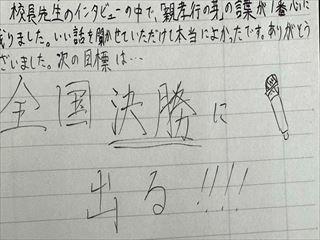 校長先生のインタビューの中で、「親孝行の芽」の言葉が1番心に
残りました。いい話を聞かせていただけて本当によかったです。ありがとう
ございました。次の目標は…
全国決勝に
出る!!!!